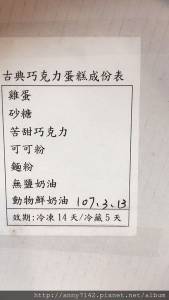 古典巧克力蛋糕成份表
雞蛋
砂糖
苦甜巧克力
可可粉
麵粉
無鹽奶油
動物鮮奶油 107.3.13
效期:冷凍14天/冷藏5天
http://anny7142.pixnet.net/album